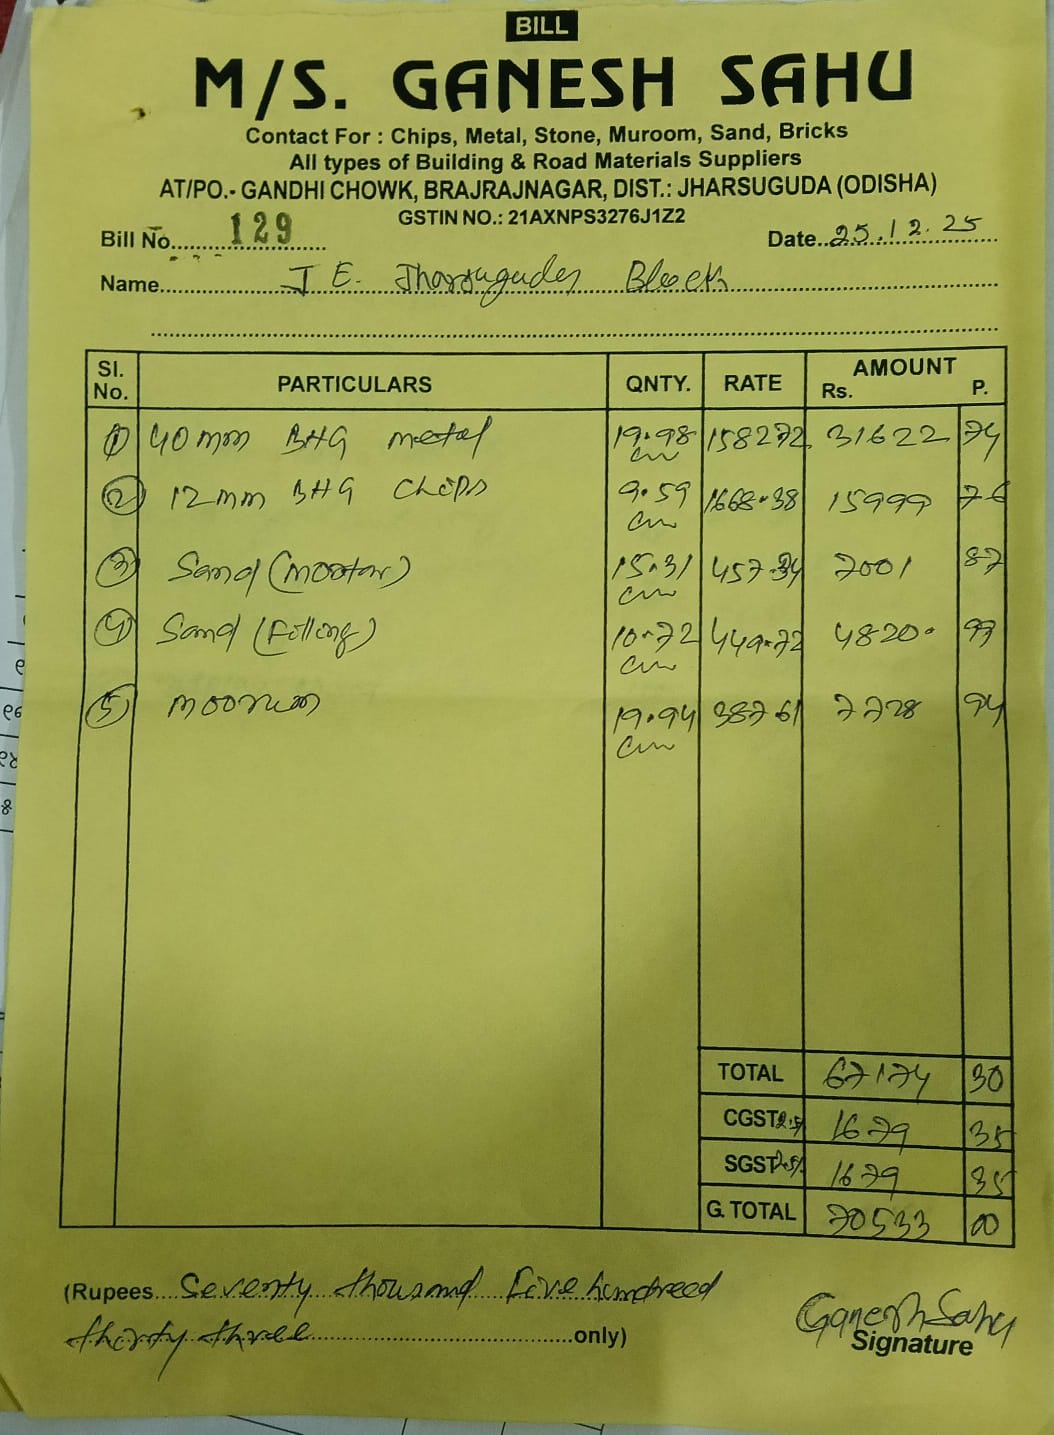 BILL
M/S. GANESH SAHU
Contact For : Chips, Metal, Stone, Muroom, Sand, Bricks
All types of Building & Road Materials Suppliers
AT/PO.- GANDHI CHOWK, BRAJRAJNAGAR, DIST.: JHARSUGUDA (ODISHA)
GSTIN NO.: 21AXNPS3276J1Z2
Bill No. 129 Date. 25.12.25
Name. J E. Jharsuguda Block
Sl. No. PARTICULARS QNTY. RATE AMOUNT Rs. P.
1 40mm BHG metal 19.98 cm 158272 31622 74
2 12mm BHG Chips 9.59 cm 1668.38 15999 76
3 Sand (Mortar) 15.31 cm 457.34 7001 87
4 Sand (Filling) 10.72 cm 449.72 4820. 99
5 Moorum 19.94 cm 387 61 7728 94
TOTAL 67174 30
CGST 2.5% 1679 35
SGST 2.5% 1679 35
G. TOTAL 70533 00
(Rupees Seventy thousand Five hundreed
thirty three only)
Ganesh Sahu
Signature